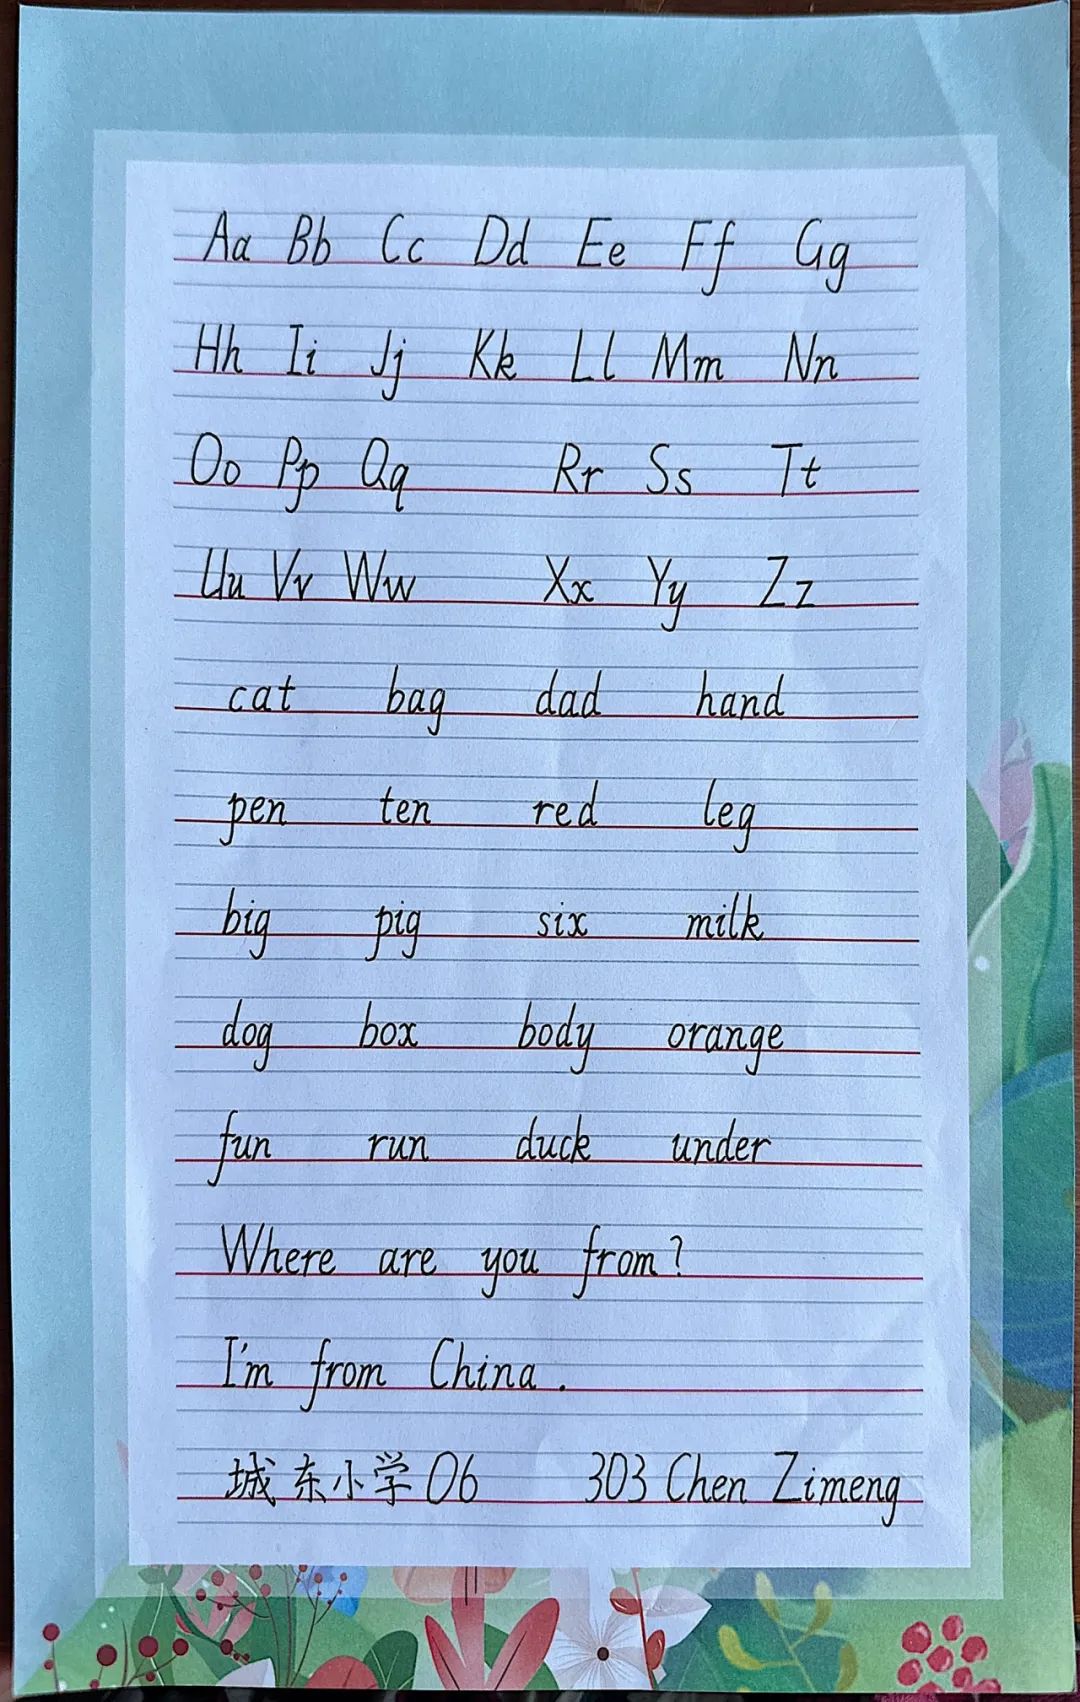 Aa Bb Cc Dd Ee Ff Gg
Hh Ii Jj Kk Ll Mm Nn
Oo Pp Qq Rr Ss Tt
Uu Vv Ww Xx Yy Zz
cat bag dad hand
pen ten red leg
big pig six milk
dog box body orange
fun run duck under
Where are you from?
I'm from China.
城东小学06 303 Chen Zimeng